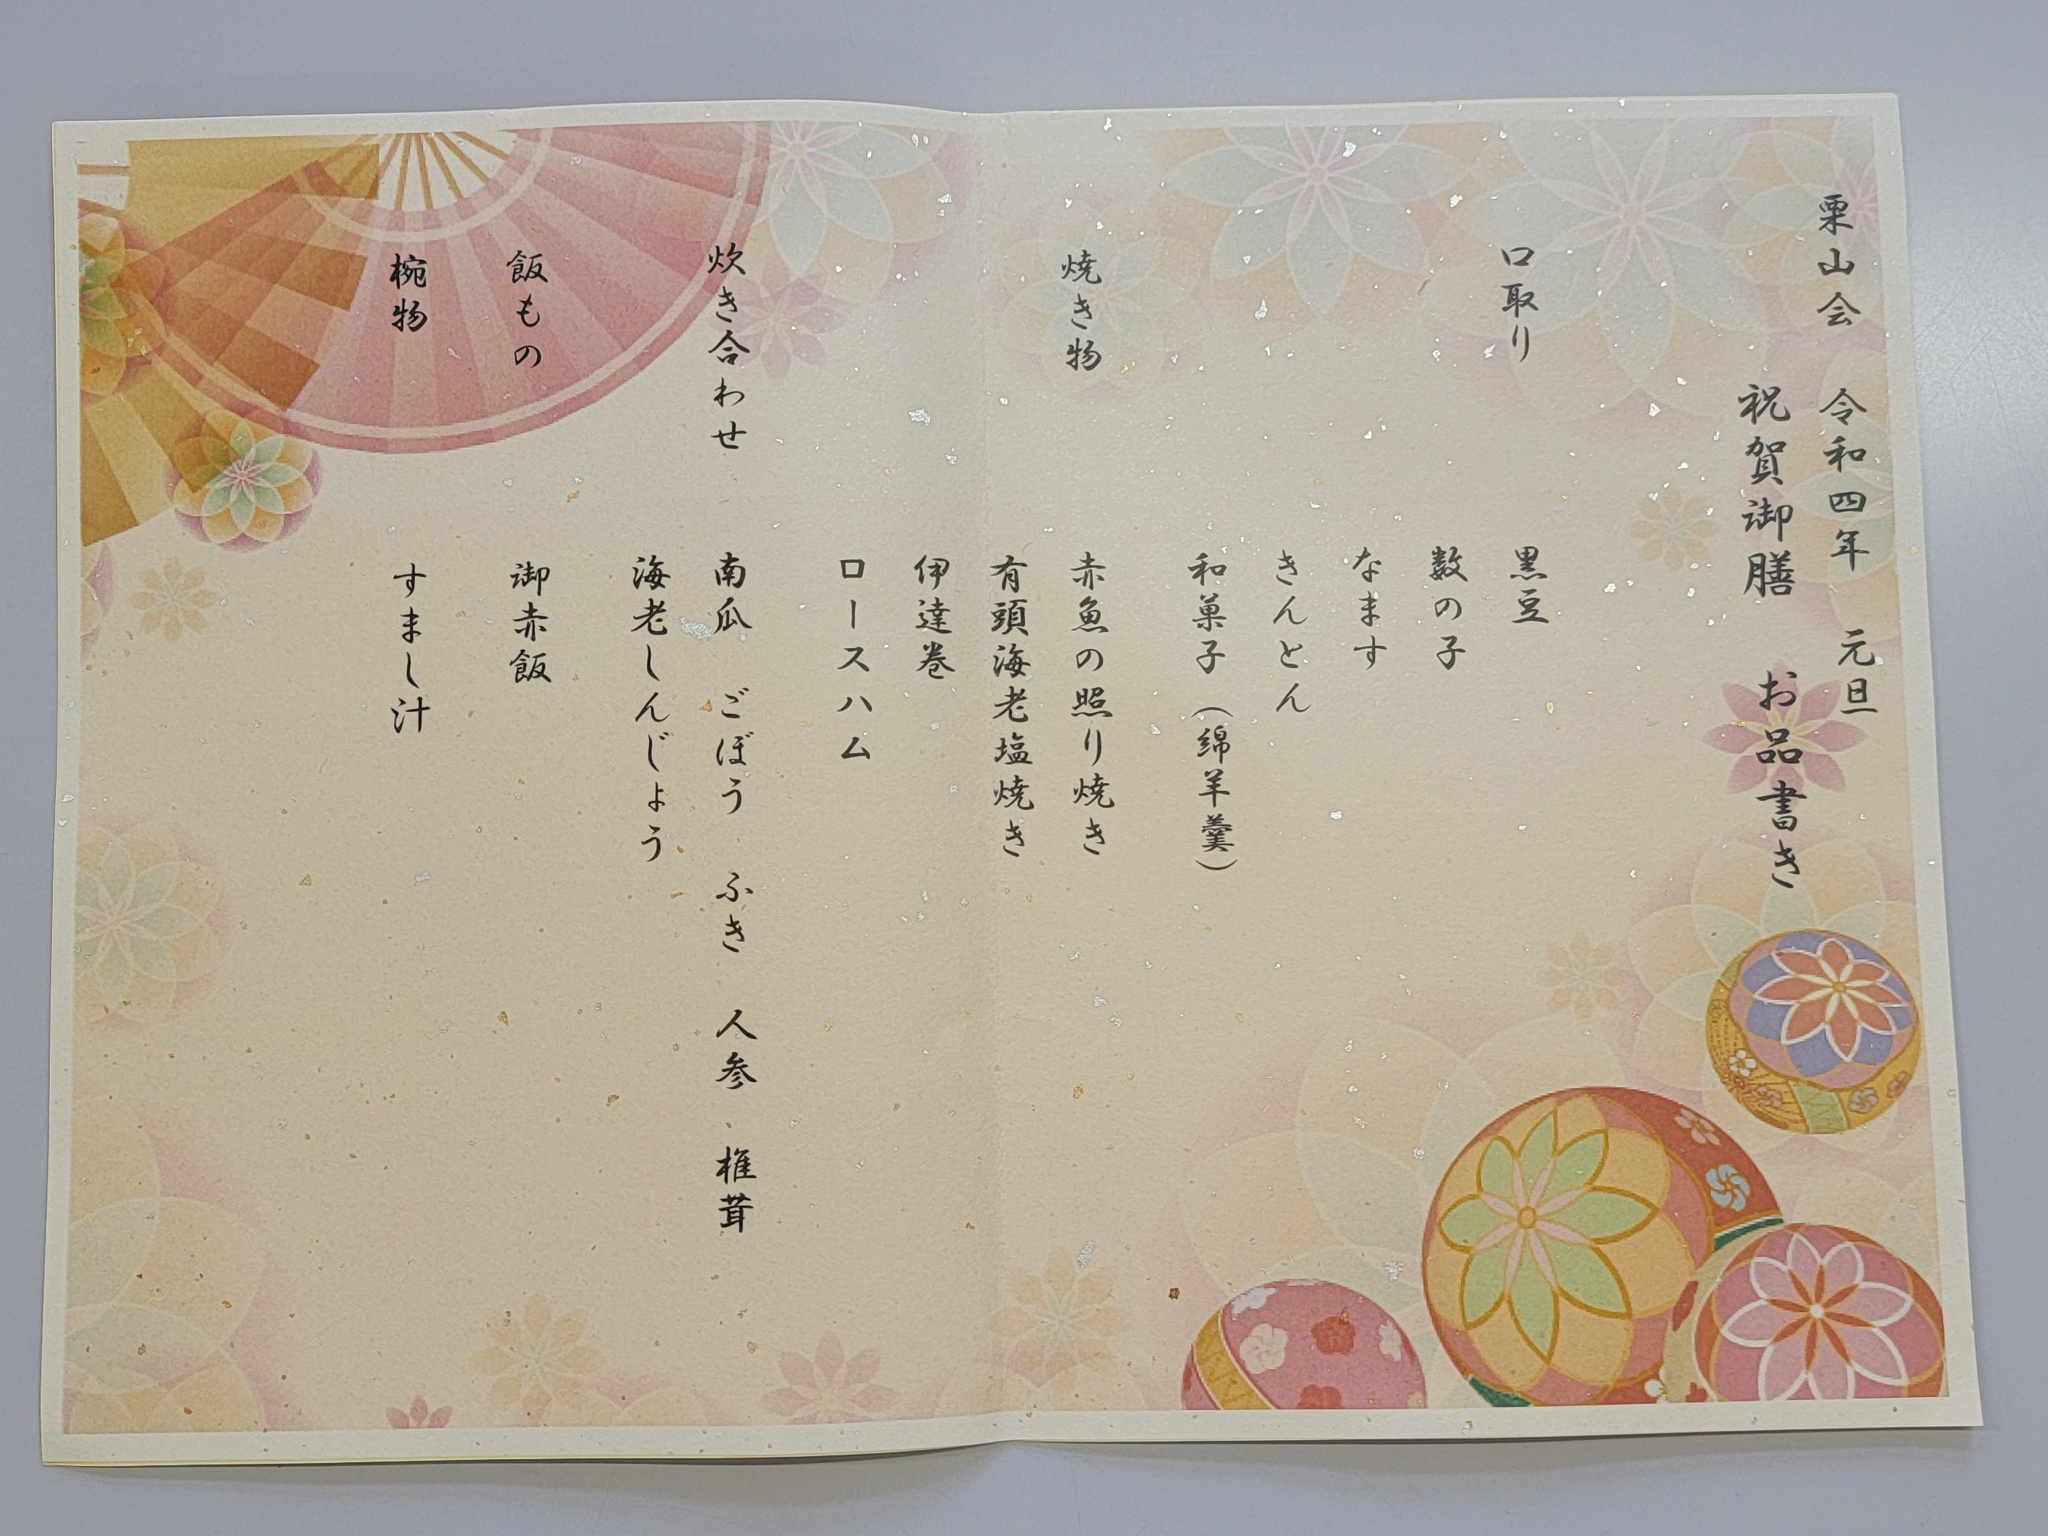 栗山会　令和四年　元旦
祝賀御膳　お品書き
口取り　黒豆
数の子
なます
きんとん
和菓子（綿羊羹）
焼き物　赤魚の照り焼き
有頭海老塩焼き
伊達巻
ロースハム
炊き合わせ　南瓜　ごぼう　ふき　人参　椎茸
海老しんじょう
飯もの　御赤飯
椀物　すまし汁